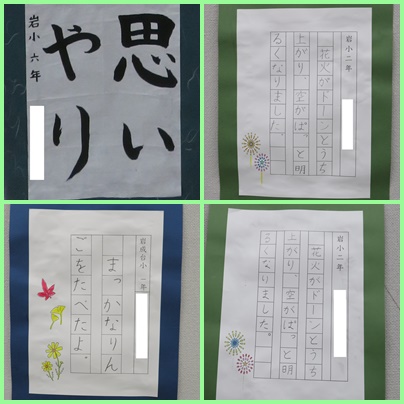 思い
やり
岩小 六年
岩小 二年
花火がドーンとうち
上がり 空がぱっと明
るくなりました。
岩成台小 一年
まっかなりん
ごをたべたよ。
岩小 二年
花火がドーンとうち
上がり 空がぱっと明
るくなりました。